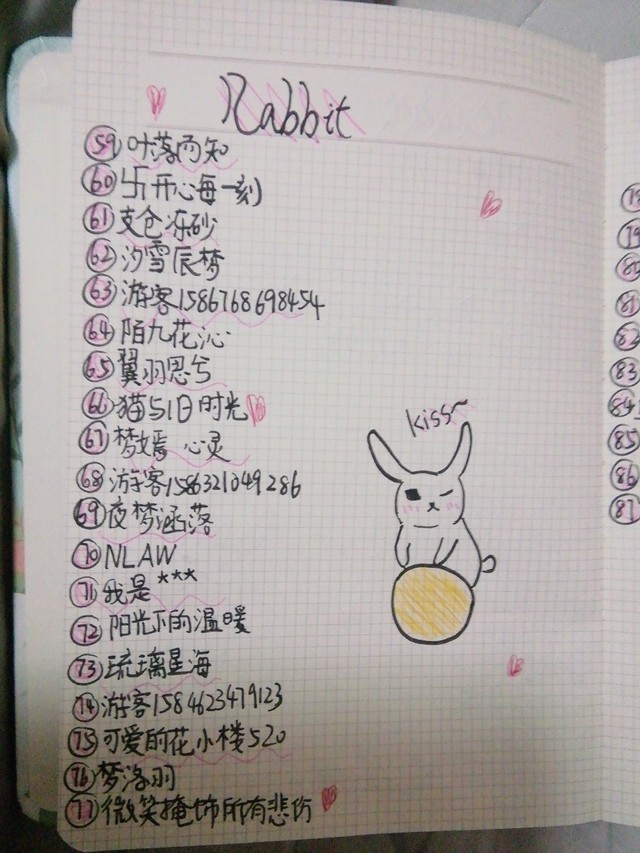 Rabbit
59 叶落而知
60 卐开心每一刻
61 支仓冻砂
62 汐雪辰梦
63 游客1586768698454
64 陌九花沁
65 翼羽思兮
66 猫51日时光
67 梦嫣 心灵
kiss~
68 游客1586321049286
69 夜梦涵落
70 NLAW
71 我是***
72 阳光下的温暖
73 琉璃星海
74 游客1584623479123
75 可爱的花小楼520
76 梦洛羽
77 微笑掩饰所有悲伤
79
80
81
82
83
84
85
86
87